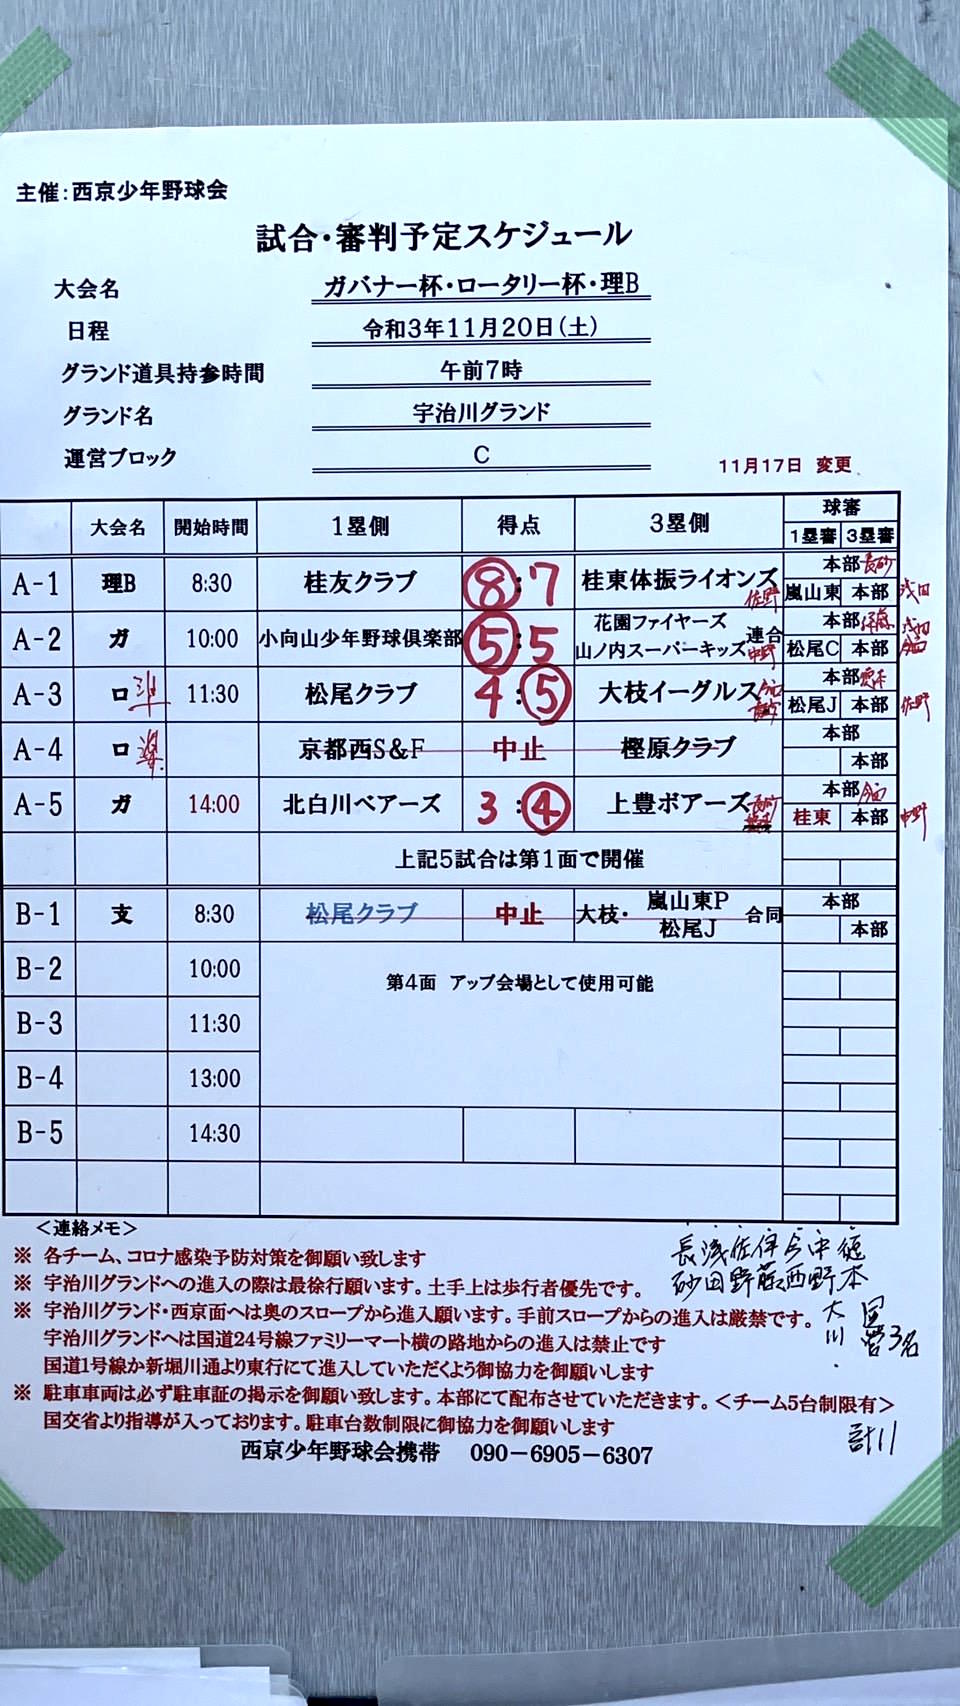 主催：西京少年野球会
試合・審判予定スケジュール
大会名 ガバナー杯・ロータリー杯・理B
日程 令和3年11月20日(土)
グランド道具持参時間 午前7時
グランド名 宇治川グランド
運営ブロック C
11月17日 変更
大会名 開始時間 1塁側 得点 3塁側 球審
1塁審 3塁審
A-1 理B 8:30 桂友クラブ 8:7 桂東体振ライオンズ 佐野 本部 長砂
嵐山東 本部 浅田
A-2 ガ 10:00 小向山少年野球倶楽部 5:5 花園ファイヤーズ 本部
山ノ内スーパーキッズ 連合 中野 松尾C 本部
A-3 ロ 準 11:30 松尾クラブ 4:5 大枝イーグルス 本部
松尾J 本部 佐野
A-4 ロ 準 京都西S&F 中止 樫原クラブ 本部
本部
A-5 ガ 14:00 北白川ベアーズ 3:4 上豊ボアーズ 長砂 本部 今西
桂東 本部 中野
上記5試合は第1面で開催
B-1 支 8:30 松尾クラブ 中止 大枝・ 嵐山東P 松尾J 合同 本部
本部
B-2 10:00 第4面 アップ会場として使用可能
B-3 11:30
B-4 13:00
B-5 14:30
＜連絡メモ＞
※ 各チーム、コロナ感染予防対策を御願い致します
※ 宇治川グランドへの進入の際は最徐行願います。土手上は歩行者優先です。
※ 宇治川グランド・西京面へは奥のスロープから進入願います。手前スロープからの進入は厳禁です。
宇治川グランドへは国道24号線ファミリーマート横の路地からの進入は禁止です
国道1号線か新堀川通より東行にて進入していただくよう御協力を御願いします
※ 駐車車両は必ず駐車証の掲示を御願い致します。本部にて配布させていただきます。＜チーム5台制限有＞
国交省より指導が入っております。駐車台数制限に御協力を御願いします
西京少年野球会携帯 090-6905-6307
長砂 浅田 佐野 伊藤 今西 中野 徳本
大川 3名
計11